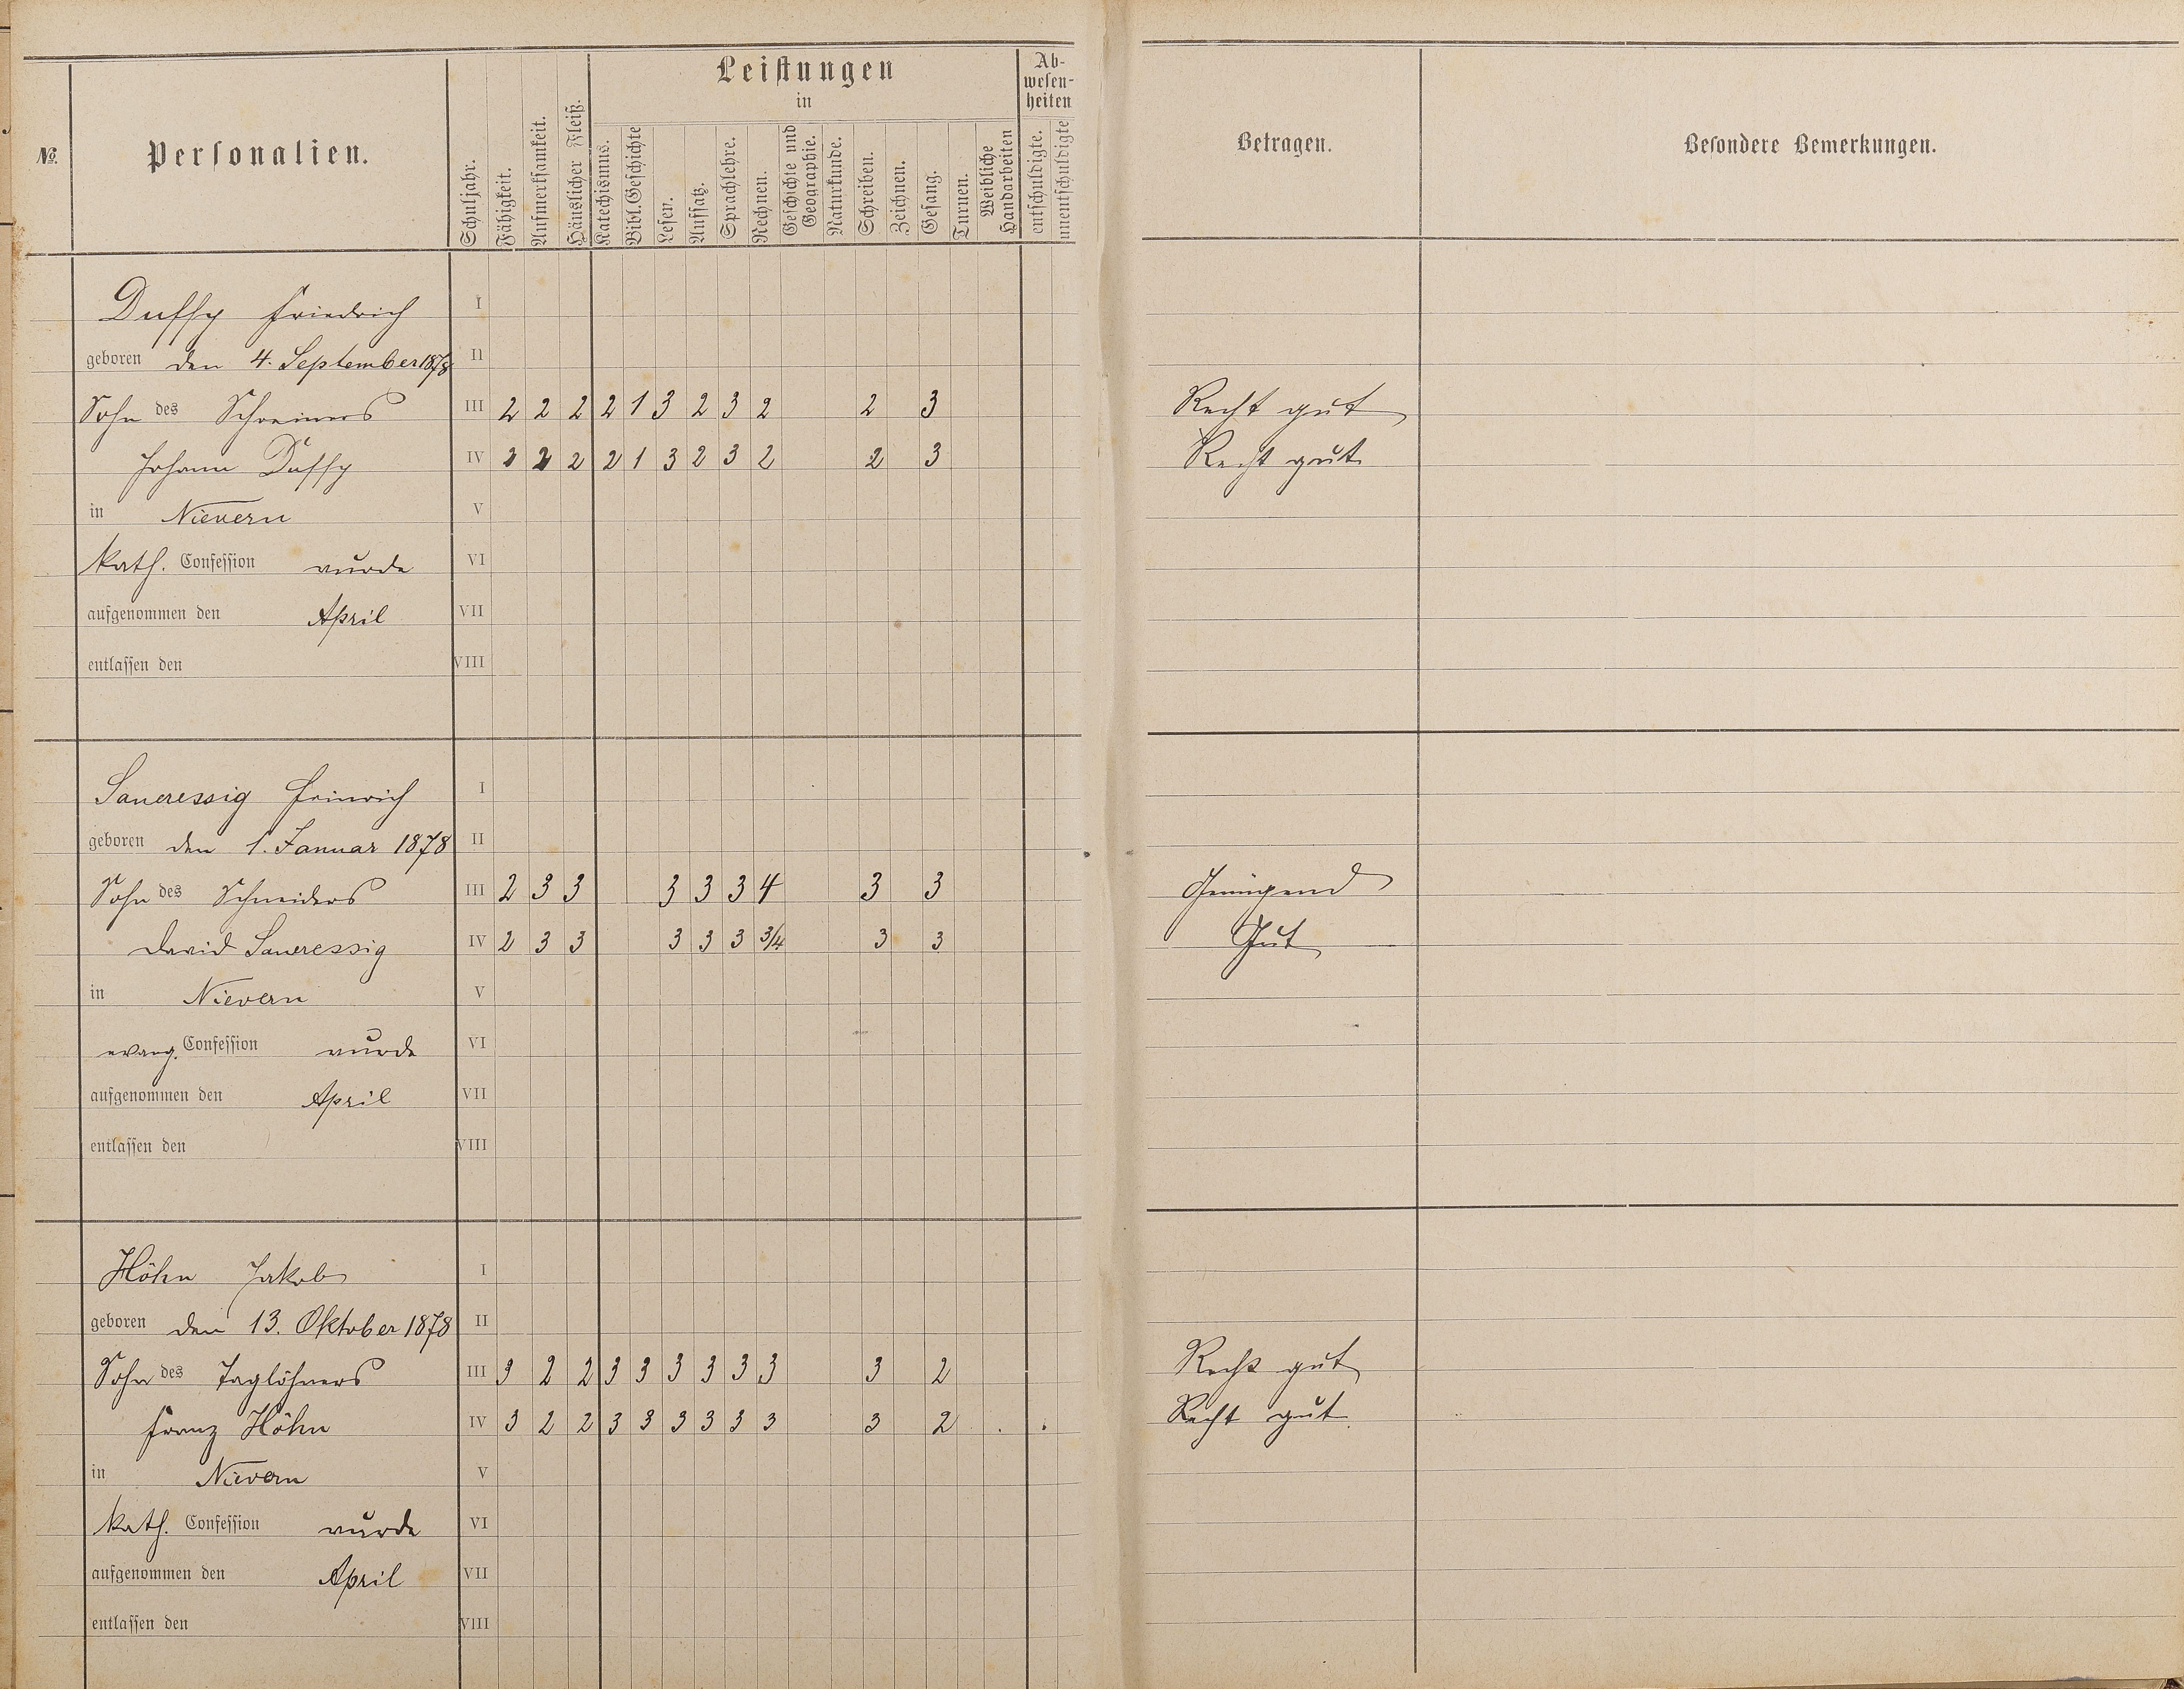 №.
Personalien.
Schuljahr.
Fähigkeit.
Aufmerksamkeit.
Häuslicher Fleiß.
Leistungen
in
Katechismus.
Bibl. Geschichte
Lesen.
Aufsatz.
Sprachlehre.
Rechnen.
Geschichte und
Geographie.
Naturkunde.
Schreiben.
Zeichnen.
Gesang.
Turnen.
Weibliche
Handarbeiten
Ab-
wesen-
heiten
entschuldigte.
unentschuldigte
Betragen.
Besondere Bemerkungen.
Duffy Friedrich I
geboren den 4. September 1878 II
Sohn des Schreiners III 2 2 2 2 1 3 2 3 2 2 3 Recht gut
Johann Duffy IV 2 2 2 2 1 3 2 3 2 2 3 Recht gut
in Nievern V
kath. Confession wurde VI
aufgenommen den April VII
entlassen den VIII
Saueressig Heinrich I
geboren den 1. Januar 1878 II
Sohn des Schneiders III 2 3 3 3 3 3 4 3 3 Genügend
David Saueressig IV 2 3 3 3 3 3 3/4 3 3 Gut
in Nievern V
evang. Confession wurde VI
aufgenommen den April VII
entlassen den VIII
Höhn Jakob I
geboren den 13. Oktober 1878 II
Sohn des Taglöhners III 3 2 2 3 3 3 3 3 3 3 2 Recht gut
Franz Höhn IV 3 2 2 3 3 3 3 3 3 3 2 . . Recht gut.
in Nievern V
kath. Confession wurde VI
aufgenommen den April VII
entlassen den VIII